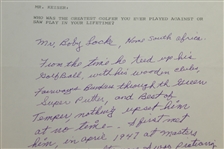 MR. KEISER:
WHO WAS THE GREATEST GOLFER YOU EVER PLAYED AGAINST OR
SAW PLAY IN YOUR LIFETIME?
Mr. Boby Lock, from South Africa.
From the time he teed up his
Golfball, with his wooden clubs,
Fairways Duskes through the Green
Super Putter, and Best of
Temper, nothing upset him
at no time. I first met
him, in april 1947 at masters